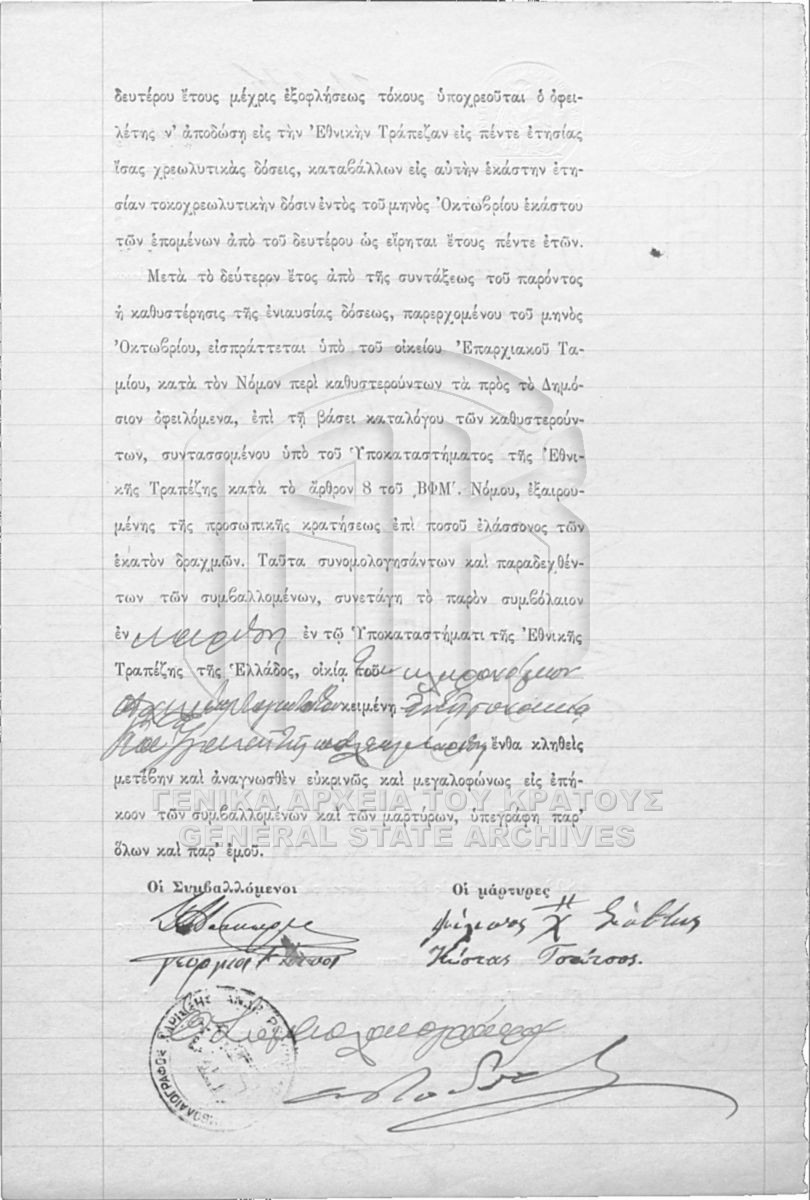 δευτέρου ἔτους μέχρις ἐξοφλήσεως τόκους ὑποχρεοῦται ὁ ὀφει-
λέτης ν' ἀποδώσῃ εἰς τὴν Ἐθνικὴν Τράπεζαν εἰς πέντε ἐτησίας
ἴσας χρεωλυτικὰς δόσεις, καταβάλλων εἰς αὐτὴν ἑκάστην ἐτη-
σίαν τοκοχρεωλυτικὴν δόσιν ἐντὸς τοῦ μηνὸς Ὀκτωβρίου ἑκάστου
τῶν ἑπομένων ἀπὸ τοῦ δευτέρου ὡς εἴρηται ἔτους πέντε ἐτῶν.
Μετὰ τὸ δεύτερον ἔτος ἀπὸ τῆς συντάξεως τοῦ παρόντος
ἡ καθυστέρησις τῆς ἐνιαυσίας δόσεως, παρερχομένου τοῦ μηνὸς
Ὀκτωβρίου, εἰσπράττεται ὑπὸ τοῦ οἰκείου Ἐπαρχιακοῦ Τα-
μίου, κατὰ τὸν Νόμον περὶ καθυστερούντων τὰ πρὸς τὸ Δημό-
σιον ὀφειλόμενα, ἐπὶ τῇ βάσει καταλόγου τῶν καθυστερούν-
των, συντασσομένου ὑπὸ τοῦ Ὑποκαταστήματος τῆς Ἐθνι-
κῆς Τραπέζης κατὰ τὸ ἄρθρον 8 τοῦ ͵ΒΦΜ΄. Νόμου, ἐξαιρου-
μένης τῆς προσωπικῆς κρατήσεως ἐπὶ ποσοῦ ἐλάσσονος τῶν
ἑκατὸν δραχμῶν. Ταῦτα συνομολογησάντων καὶ παραδεχθέν-
των τῶν συμβαλλομένων, συνετάγη τὸ παρὸν συμβόλαιον
ἐν Λαρίσῃ ἐν τῷ Ὑποκαταστήματι τῆς Ἐθνικῆς
Τραπέζης τῆς Ἑλλάδος, οἰκίᾳ τοῦ τῶν κληρονόμων
κειμένῃ
ἔνθα κληθεὶς
μετέβην καὶ ἀναγνωσθὲν εὐκρινῶς καὶ μεγαλοφώνως εἰς ἐπή-
κοον τῶν συμβαλλομένων καὶ τῶν μαρτύρων, ὑπεγράφη παρ'
ὅλων καὶ παρ' ἐμοῦ.
ΓΕΝΙΚΑ ΑΡΧΕΙΑ ΤΟΥ ΚΡΑΤΟΥΣ
GENERAL STATE ARCHIVES
Οἱ Συμβαλλόμενοι Οἱ μάρτυρες
Κώστας Τσάτσος.